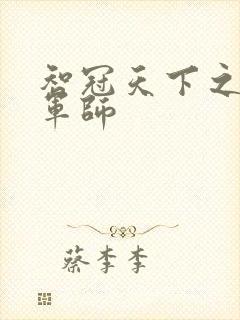 智冠天下之
軍師
蔡李李